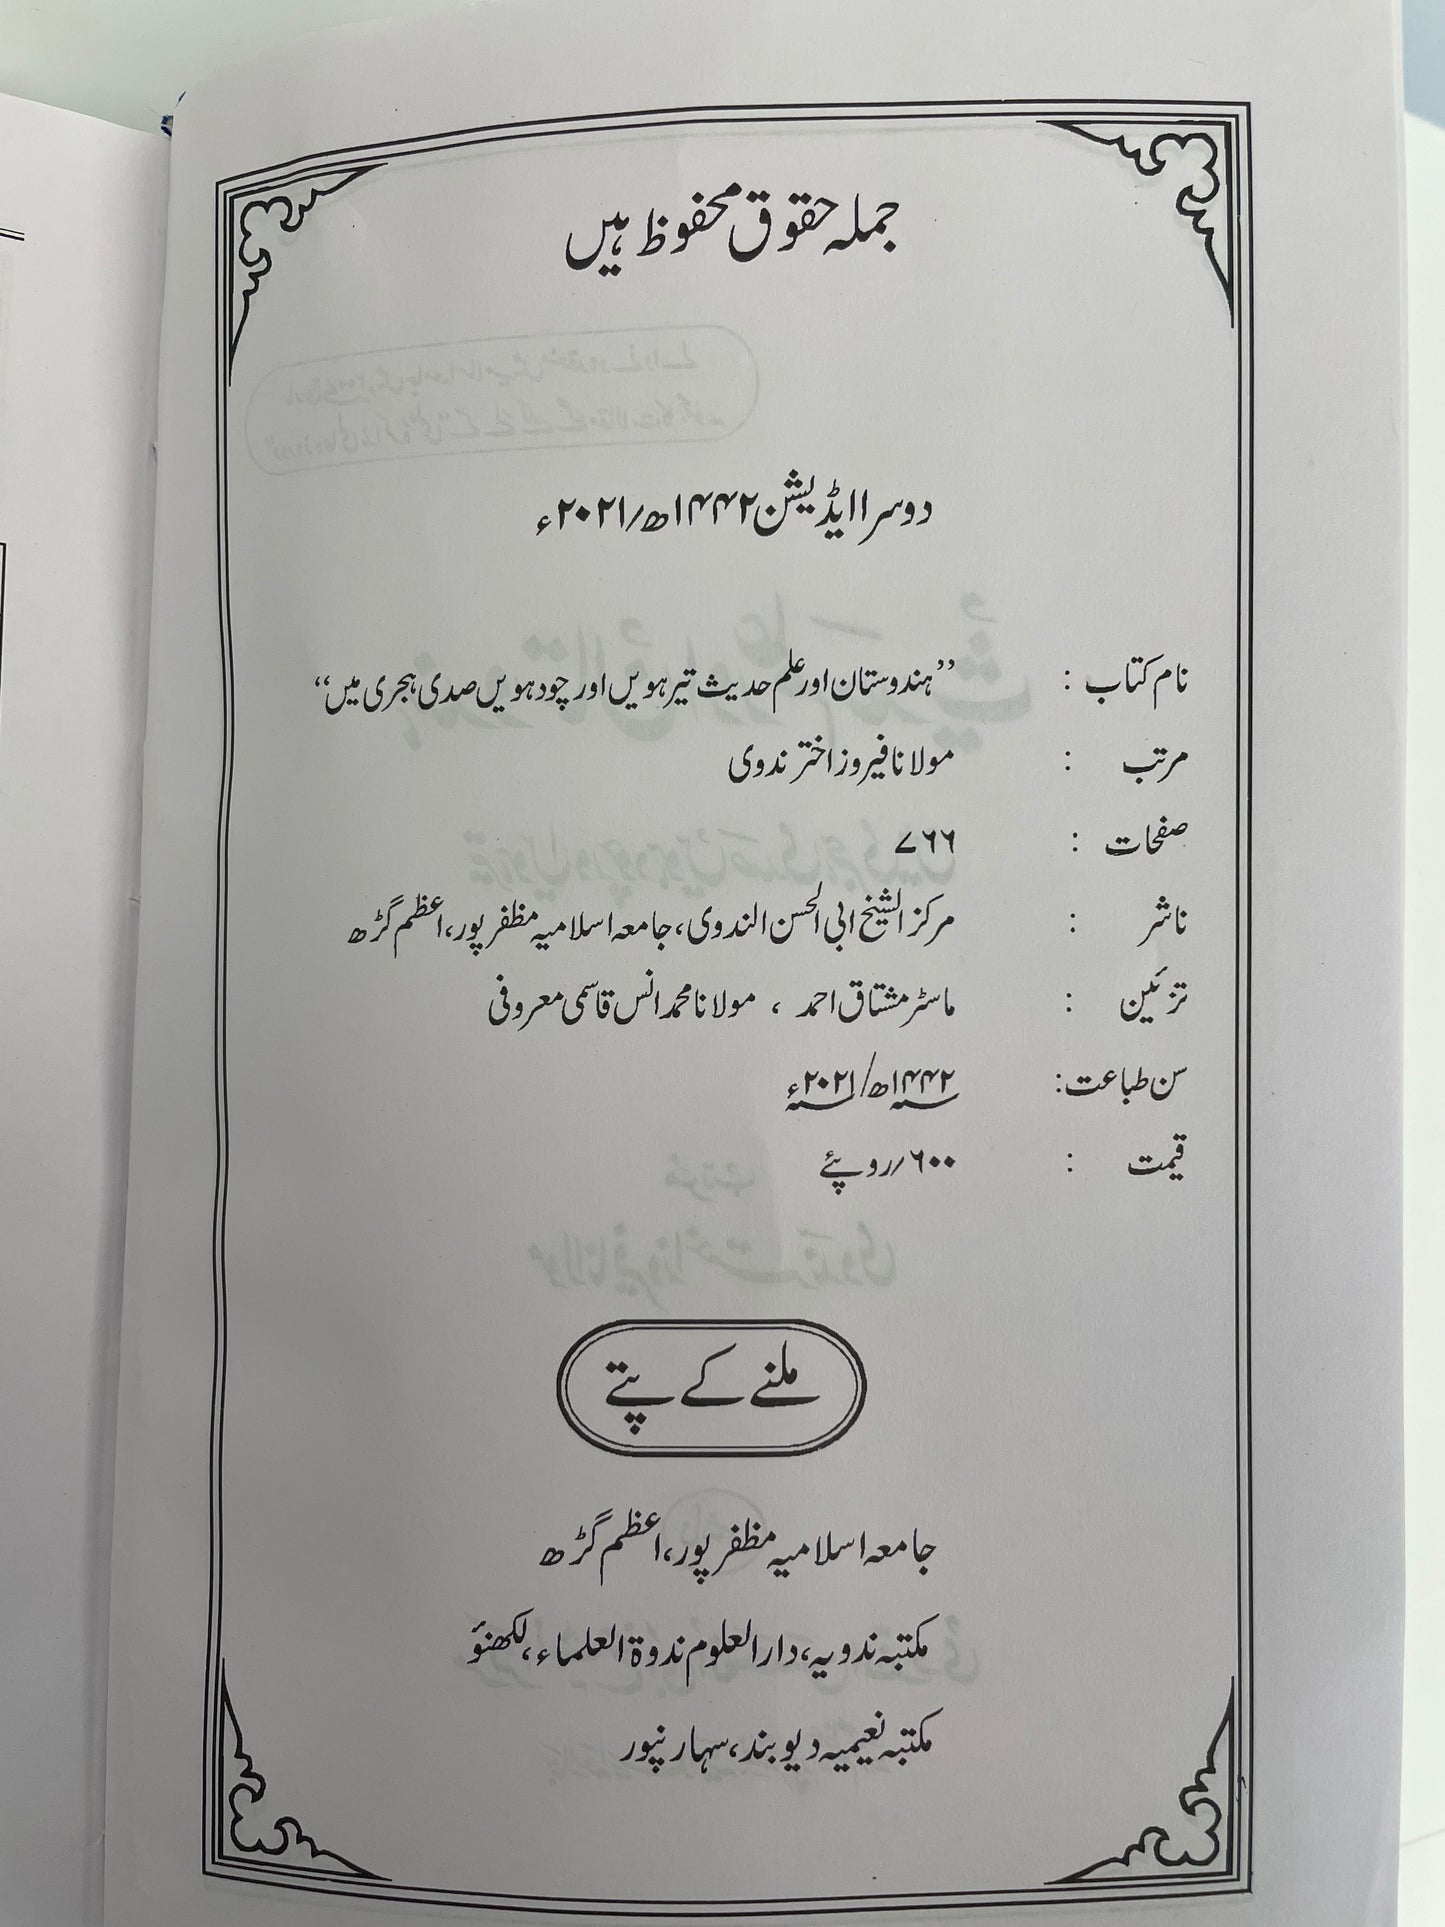 جملہ حقوق محفوظ ہیں
دوسرا ایڈیشن ۱۴۴۲ھ/۲۰۲۱ء
نام کتاب : ”ہندوستان اور علم حدیث تیرہویں اور چودہویں صدی ہجری میں“
مرتب : مولانا فیروز اختر ندوی
صفحات : ۷۶۶
ناشر : مرکز الشیخ ابی الحسن الندوی، جامعہ اسلامیہ مظفر پور، اعظم گڑھ
تزئین : ماسٹر مشتاق احمد ، مولانا محمد انس قاسمی معروفی
سن طباعت : ۱۴۴۲ھ/۲۰۲۱ء
قیمت : ۶۰۰/روپئے
ملنے کے پتے
جامعہ اسلامیہ مظفر پور، اعظم گڑھ
مکتبہ ندویہ، دارالعلوم ندوۃ العلماء، لکھنؤ
مکتبہ نعیمیہ دیوبند، سہارنپور